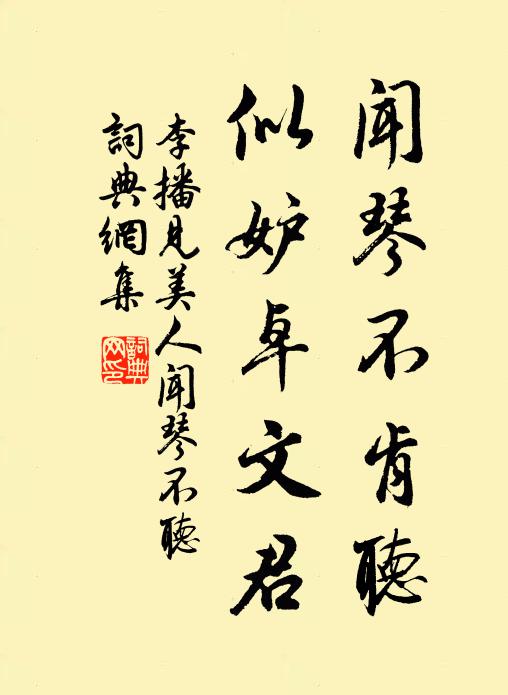 聞琴不肯聽
似妒卓文君
李播見美人聞琴不聽
詞典網集
詞典网印